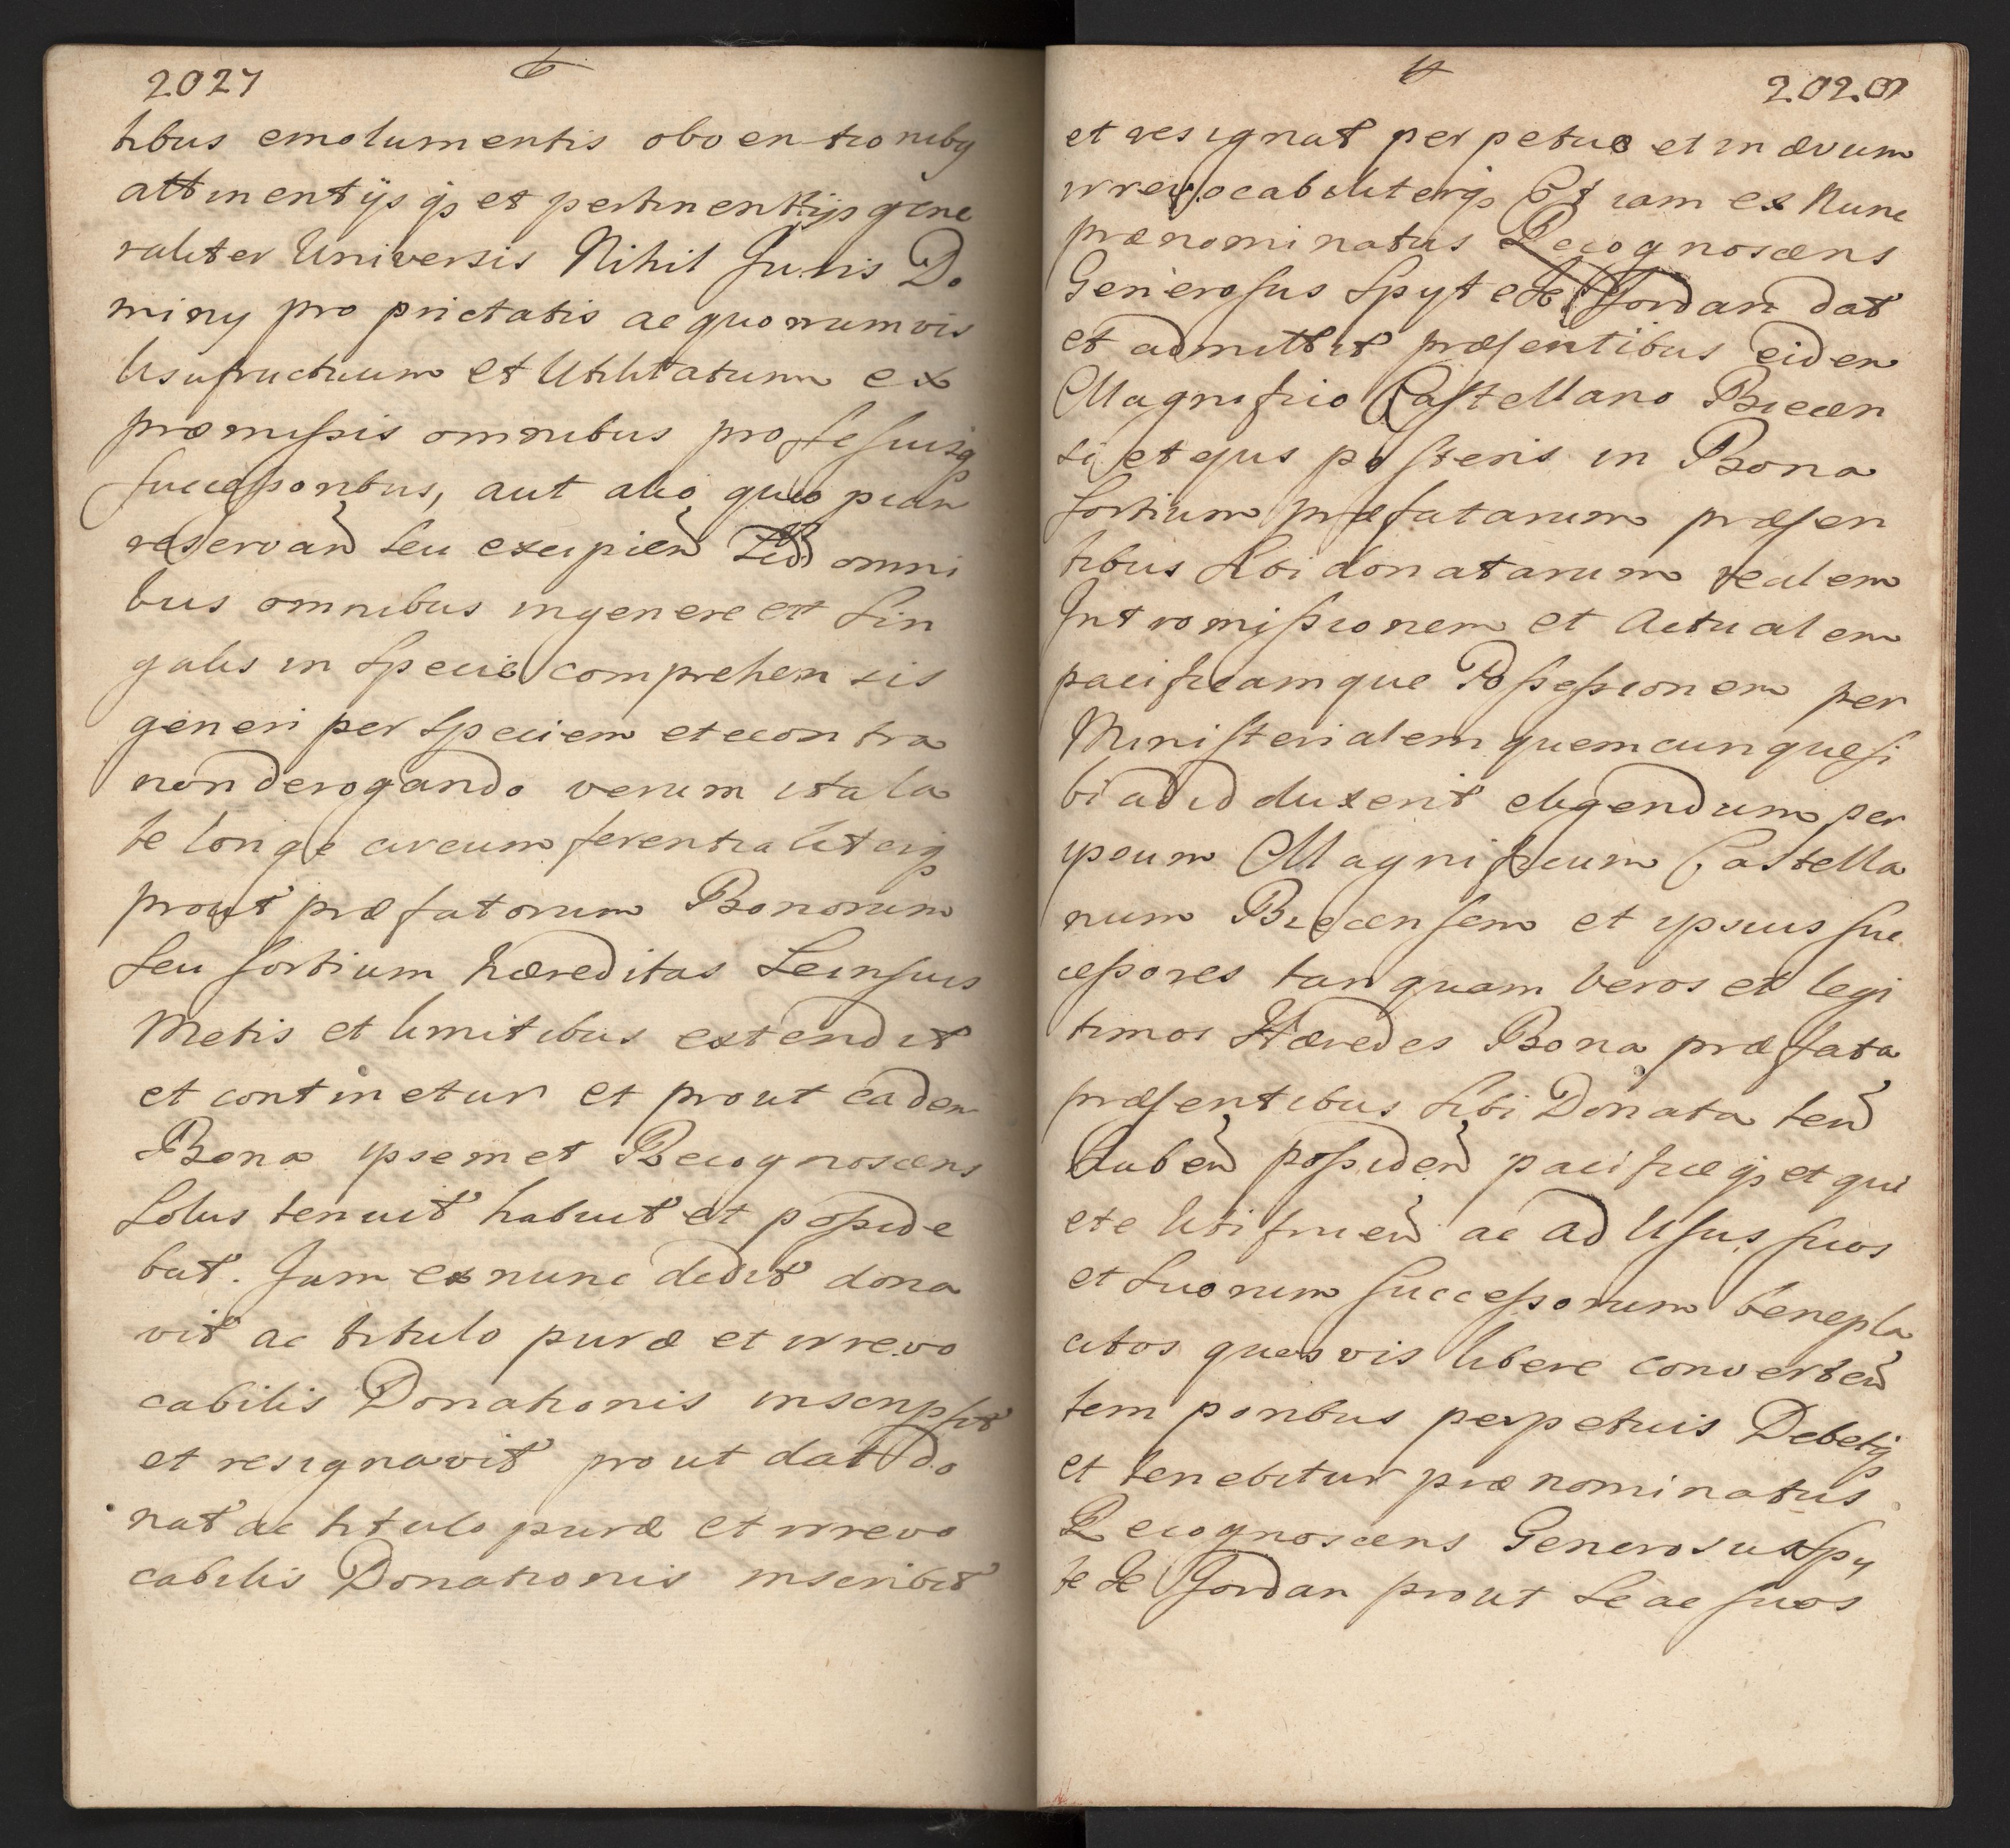 2027
tibus emolumentis oboentionibq
attinentijs q et pertinentijs gene
raliter Universis Nihil Juris Do
miny proprietatis ac quorumvis
Usufructuum et Utilitatum ex
præmissis omnibus pro se suisq
successoribus, aut alio quopiam
reservan seu excipien Sed omni
bus omnibus in genere et sin
gulis in specie comprehen sis
generi per speciem et econtra
non derogando verum ita la
te longe circumferentialiterq
prout præfatorum Bonorum
seu sortium hæreditas se in suis
Metis et limitibus extendit
et continetur et prout eadem
Bona ipsemet Recognoscens
Solus tenuit habuit et poside
bat. Jam ex nunc dedit dona
vit ac titulo puræ et irrevo
cabilis Donationis inscripsit
et resignavit prout dat do
nat ac titulo puræ et irrevo
cabilis Donationis inscribit
2028
et resignat perpetuo et in ævum
irrevocabiliterq Et iam ex Nunc
prænominatus Recognoscens
Generosus Spytek Jordan dat
et admittit præsentibus eidem
Magnifico Castellano Biecen
si et ejus posteris in Bona
sortium præfatarum præsen
tibus sibi donatarum realem
Intromissionem et Actualem
pacificamque Possessionem per
Ministerialem quemcunque si
bi ad id duxerit eligendum per
ipsum Magnificum Castella
num Biecensem et ipsius suc
cessores tanquam veros et legi
timos Hæredes Bona præfata
præsentibus sibi Donata ten
haben possiden pacificeq et qui
ete Uti fruen ac ad Usus suos
et suorum successorum benepla
citos quosvis libere converten
temporibus perpetuis Debetq
et tenebitur prænominatus
Recognoscens Generosus Spy
tek Jordan prout se ac suos